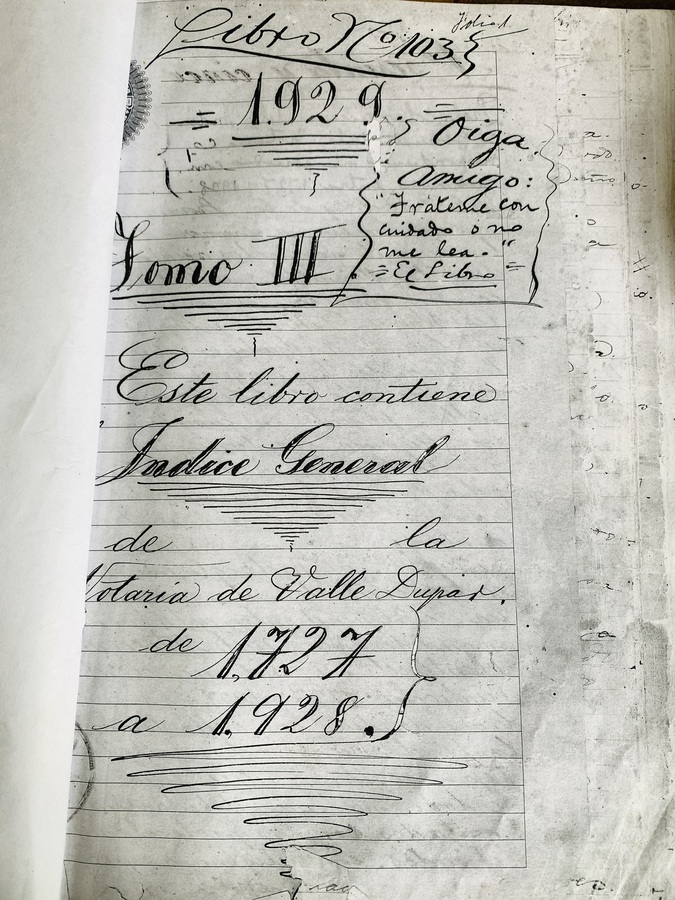 Libro No 103
1.929.
Oiga
Amigo:
"Trateme con
cuidado o no
me lea."
= El Libro =
Tomo III.
Este libro contiene
Indice General
de la
Notaria de Valle Dupar.
de 1,727
a 1.928.